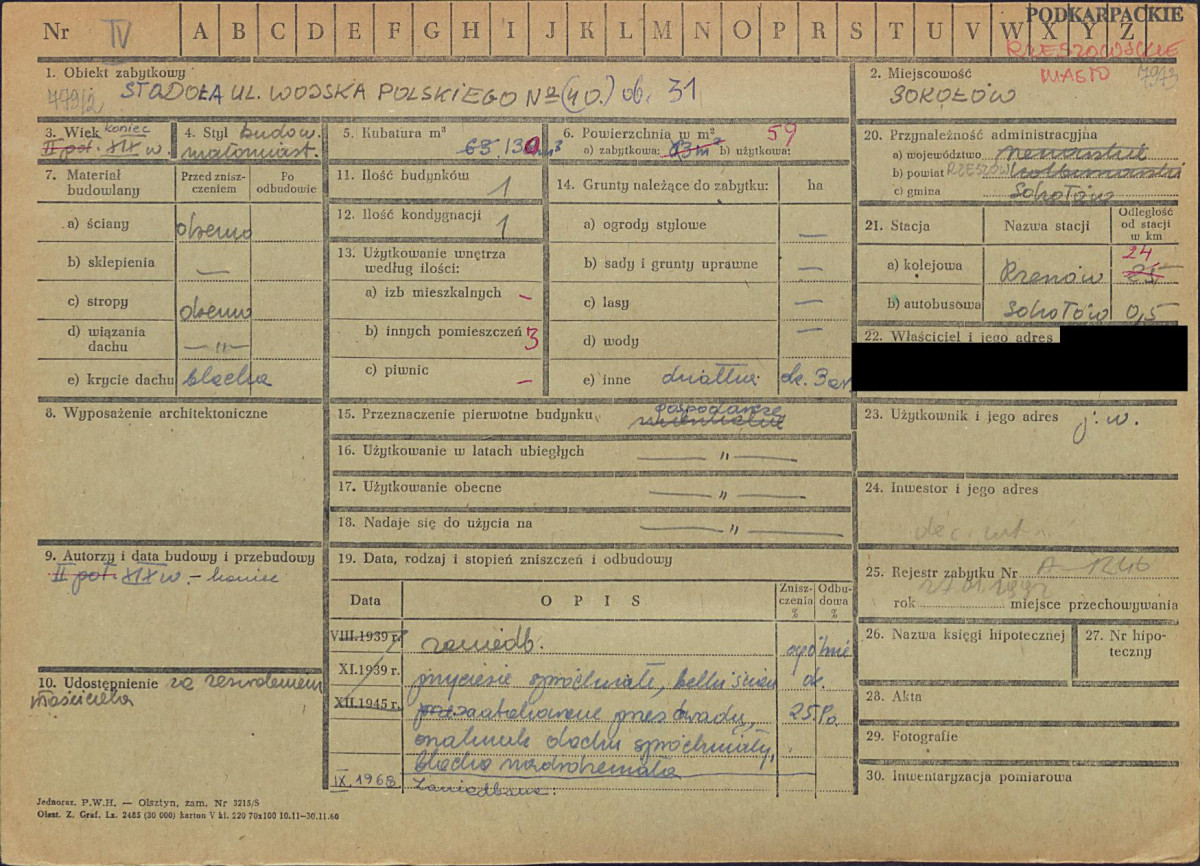 Nr IV A B C D E F G H I J K L M N O P R S T U V W X Y Z
PODKARPACKIE
RZESZOWSKIE
MIASTO
1. Obiekt zabytkowy
STODOŁA UL. WOJSKA POLSKIEGO Nr (40.) ob. 31
2. Miejscowość
SOKOŁÓW
3. Wiek koniec
II poł. XIX w.
4. Styl budow.
małomiast.
5. Kubatura m³
6. Powierzchnia w m² 59
a) zabytkowa: b) użytkowa:
7. Materiał budowlany
Przed zniszczeniem
Po odbudowie
a) ściany drewno
b) sklepienia —
c) stropy drewno
d) wiązania dachu —"—
e) krycie dachu blacha
8. Wyposażenie architektoniczne
9. Autorzy i data budowy i przebudowy
II poł. XIX w. – koniec
10. Udostępnienie za zezwoleniem
właściciela
11. Ilość budynków 1
12. Ilość kondygnacji 1
13. Użytkowanie wnętrza
według ilości:
a) izb mieszkalnych –
b) innych pomieszczeń 3
c) piwnic –
14. Grunty należące do zabytku: ha
a) ogrody stylowe —
b) sady i grunty uprawne —
c) lasy —
d) wody —
e) inne działka ok. 3 ar
15. Przeznaczenie pierwotne budynku gospodarcze
16. Użytkowanie w latach ubiegłych —"—
17. Użytkowanie obecne —"—
18. Nadaje się do użycia na —"—
19. Data, rodzaj i stopień zniszczeń i odbudowy
Data OPIS Zniszczenia % Odbudowa %
VIII.1939 r. zaniedb. ogólnie
XI.1939 r. przyciesie spróchniałe, belki ścian ok.
XII.1945 r. zaatakowane przez owady, 25%
dachu spróchniały,
blacha
IX. 1968 Zaniedbane.
20. Przynależność administracyjna
a) województwo rzeszowskie
b) powiat RZESZÓW kolbuszowski
c) gmina Sokołów
21. Stacja Nazwa stacji Odległość od stacji w km
a) kolejowa Rzeszów 24 25
b) autobusowa Sokołów 0,5
22. Właściciel i jego adres
23. Użytkownik i jego adres j. w.
24. Inwestor i jego adres
25. Rejestr zabytku Nr A-1246
rok miejsce przechowywania
26. Nazwa księgi hipotecznej
27. Nr hipoteczny
28. Akta
29. Fotografie
30. Inwentaryzacja pomiarowa
Jednoraz. P.W.H. — Olsztyn, zam. Nr 3215/S
Olszt. Z. Graf. Lz. 2485 (30 000) karton V kl. 220 70x100 10.11—30.11.60